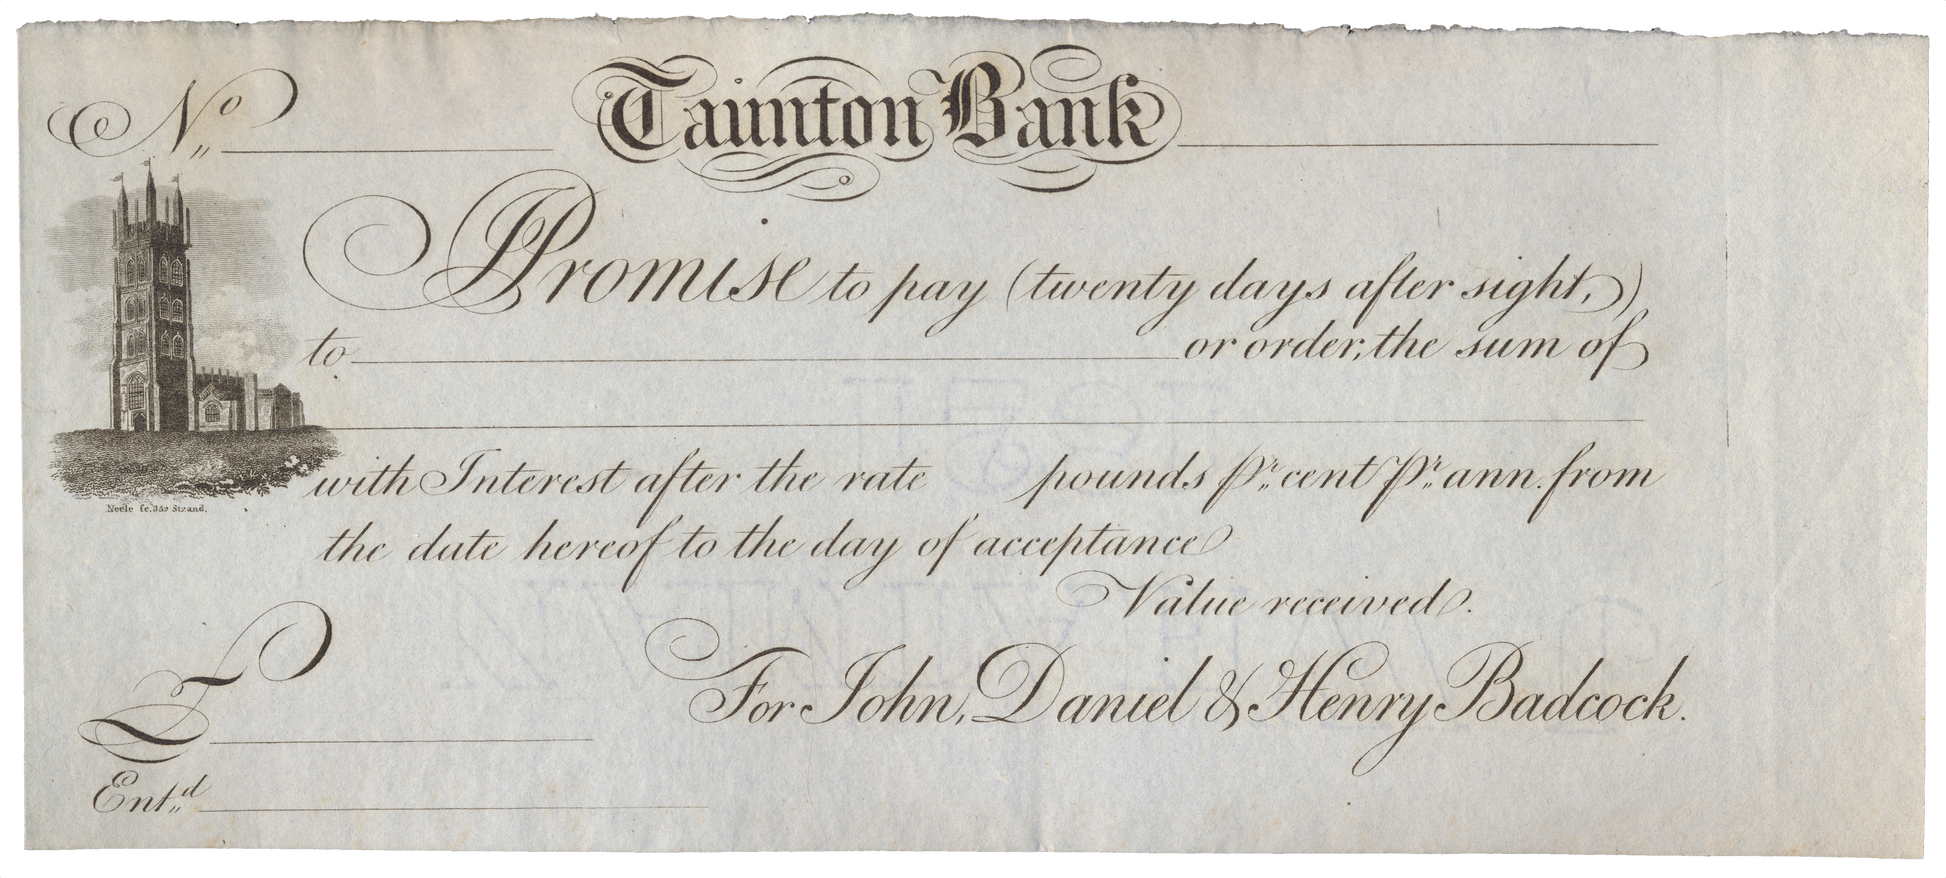 No
Taunton Bank
I Promise to pay (twenty days after sight,)
to or order, the sum of
with Interest after the rate pounds Pr. cent Pr. ann. from
the date hereof to the day of acceptance
Value received.
For John, Daniel & Henry Badcock.
£
Entd
Neele fc. 352 Strand.